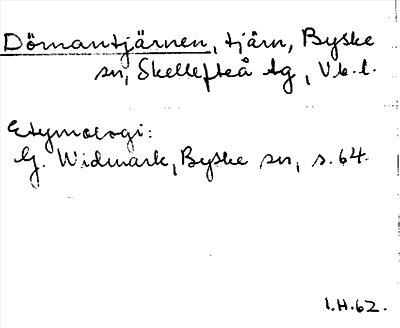 Dömantjärnen, tjärn, Byske
sn, Skellefteå tg, Vb. l.
Etymologi:
G. Widmark, Byske sn, s. 64.
I.H. 62.